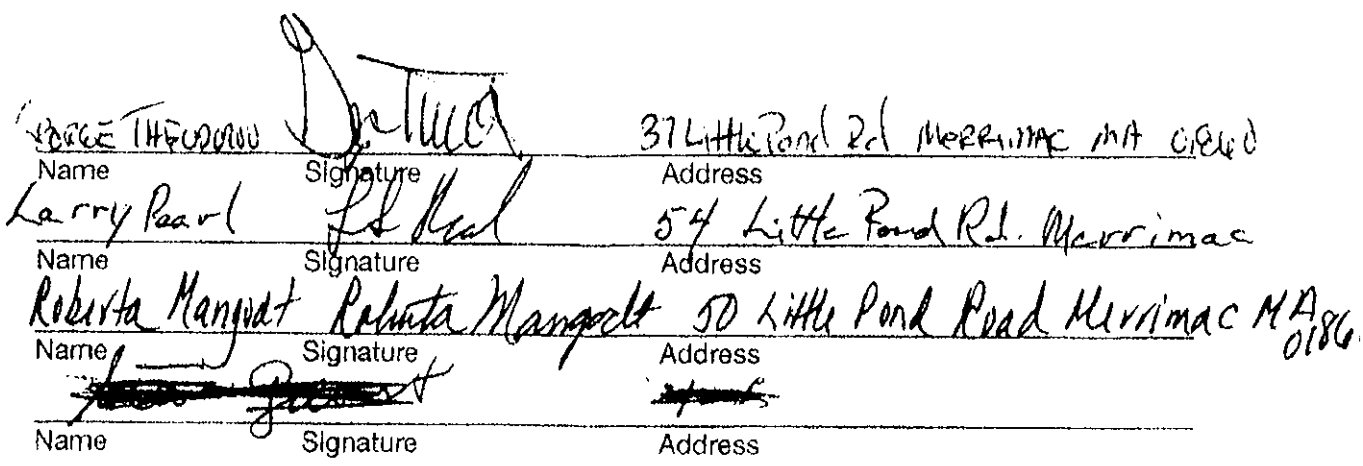 THEODOROU 37 Little Pond Rd MERRIMAC MA 01860
Name Signature Address
Larry Pearl 54 Little Pond Rd. Merrimac
Name Signature Address
Roberta Mangodt Roberta Mangodt 50 Little Pond Road Merrimac MA 0186
Name Signature Address
Name Signature Address